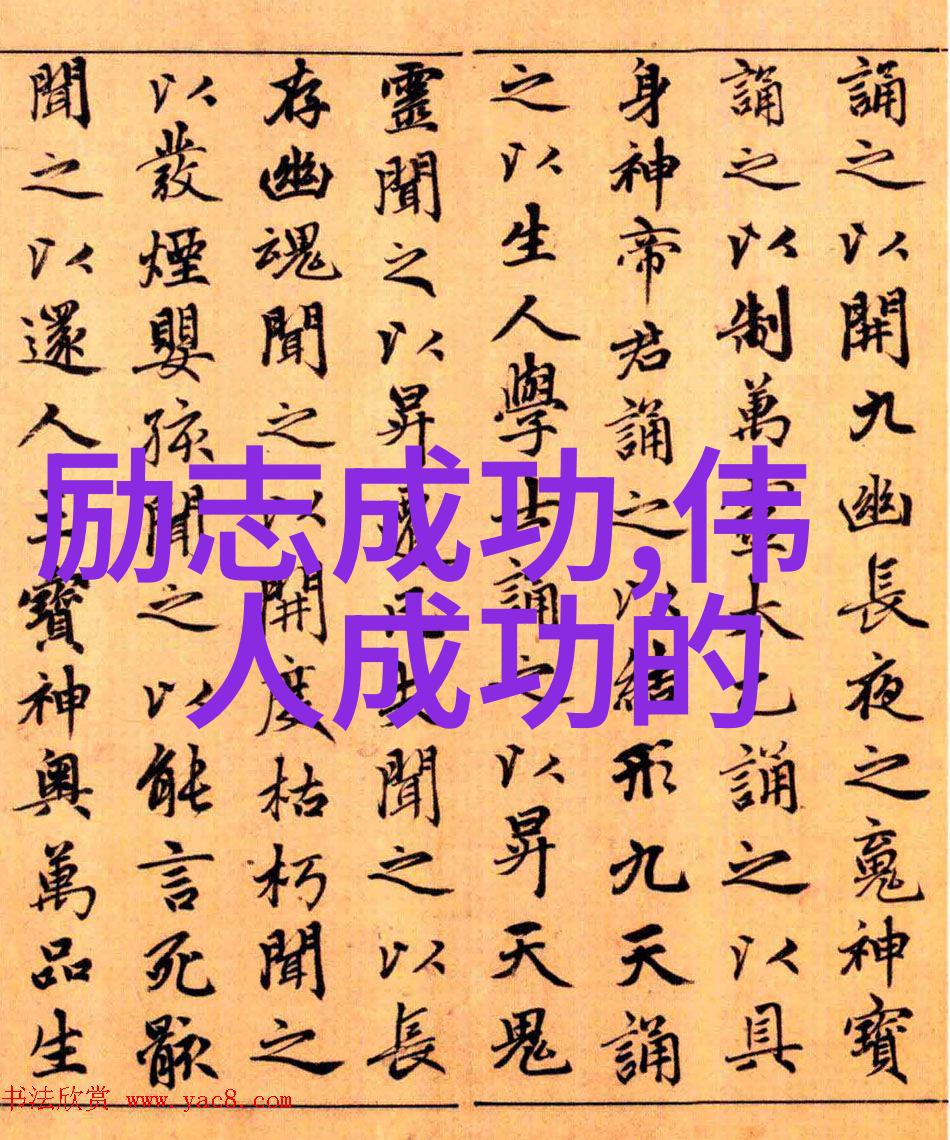 誦之以開九幽長夜之䰟神寶
誦之以制萬靈太乙誦之以具
身神帝君誦之以結形九天誦
之以生人學士誦之以昇天鬼
靈聞之以昇遷凡夫聞之以長
存幽魂聞之以開度枯朽聞之
以發煙嬰孩聞之以能言死骸
聞之以還人三寶神奧萬品生
励志成功,伟
人成功的
书法欣赏 www.yac8.com